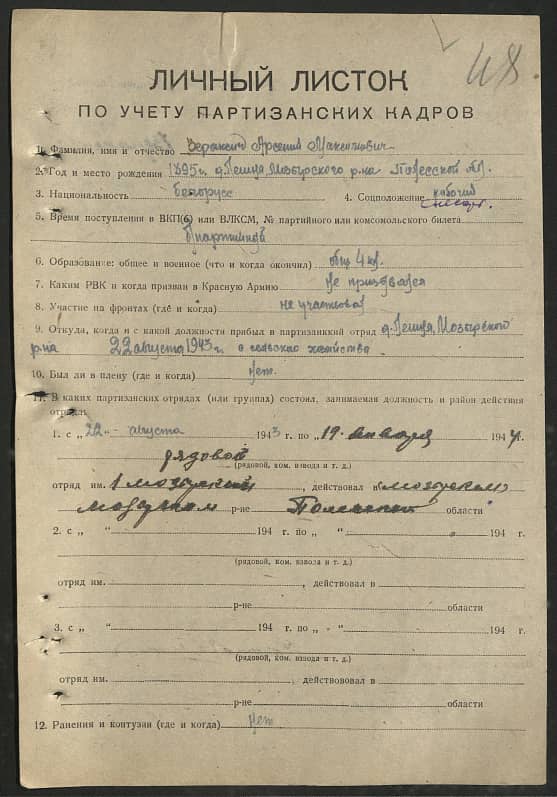 48.
ЛИЧНЫЙ ЛИСТОК
ПО УЧЕТУ ПАРТИЗАНСКИХ КАДРОВ
1. Фамилия, имя и отчество Арсений Максимович
2. Год и место рождения 1895 г. д. Мозырского р-на Полесской обл.
3. Национальность белорусс 4. Соцположение рабочий
5. Время поступления в ВКП(б) или ВЛКСМ, № партийного или комсомольского билета
б/партийный
6. Образование: общее и военное (что и когда окончил) общ. 4 кл.
7. Каким РВК и когда призван в Красную Армию не призывался
8. Участие на фронтах (где и когда) не участвовал
9. Откуда, когда и с какой должности прибыл в партизанккий отряд д. Мозырского
р-на 22 августа 1943 г. с сельского хозяйства
10. Был ли в плену (где и когда) нет.
11. В каких партизанских отрядах (или группах) состоял, занимаемая должность и район действия
отряда:
1. с „22„ августа 1943 г. по „19„ января 1944 г.
рядовой
(рядовой, ком. взвода и т. д.)
отряд им. 1 мозырский, действовал в мозырском
мозырском р-не Полесской области
2. с „ “ 194 г. по „ “ 194 г.
(рядовой, ком. взвода и т. д.)
отряд им. , действовал в
р-не области
3. с „ “ 194 г. по „ “ 194 г.
(рядовой, ком. взвода и т. д.)
отряд им. , действовал в
р-не области
12. Ранения и контузии (где и когда) нет